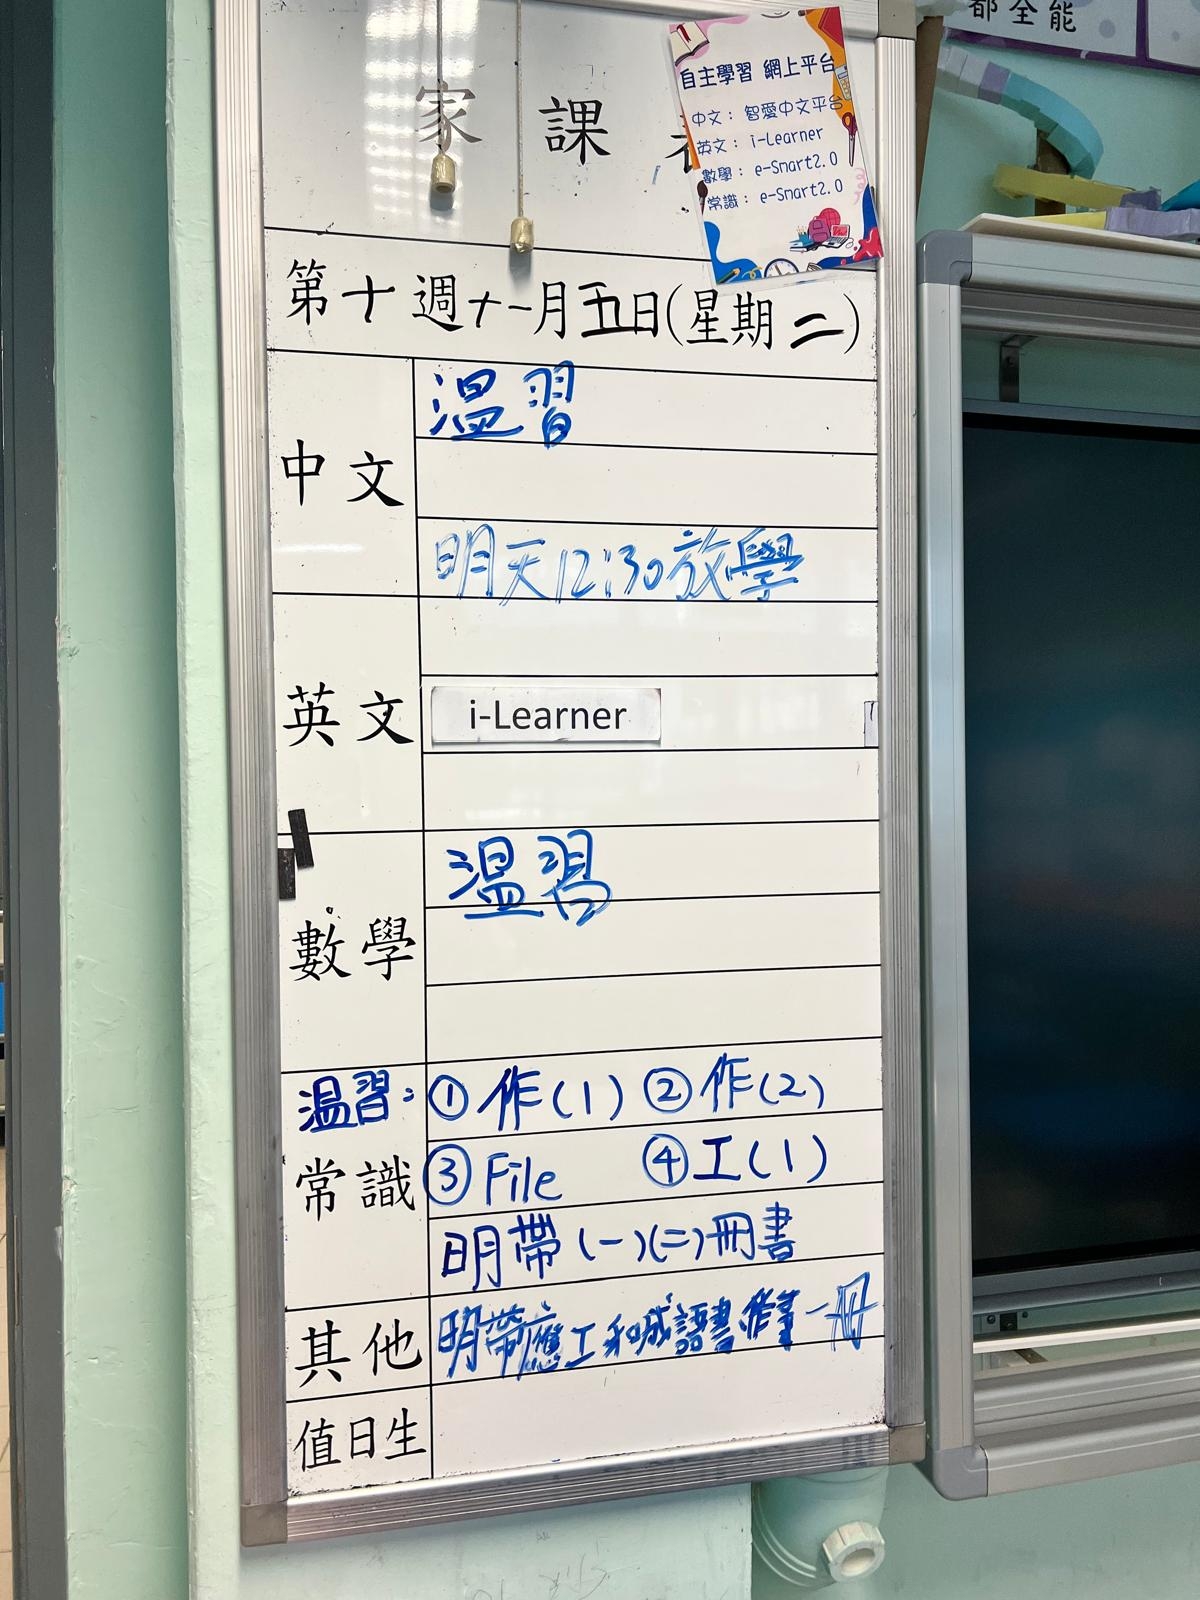 都全能
家課
自主學習 網上平台
中文：智愛中文平台
英文：i-Learner
數學：e-Smart2.0
常識：e-Smart2.0
第十週十一月五日(星期二)
中文
温習
明天12:30放學
英文
i-Learner
數學
温習
温習：①作(1) ②作(2)
常識
③File ④工(1)
明帶(一)(二)冊書
其他
明帶應工和成語書 一冊
值日生